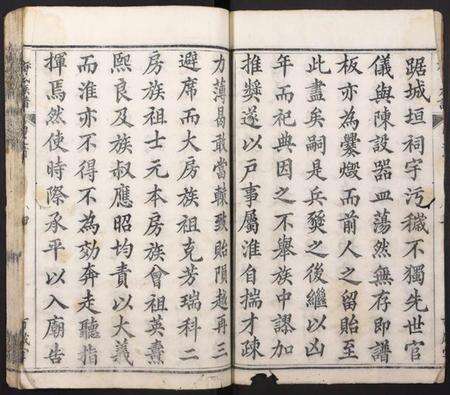 踞城垣祠宇污穢不獨先世官
儀與陳設器皿蕩然無存即譜
板亦為爨燬而前人之留貽至
此盡矣嗣是兵燹之後繼以凶
年而祀典因之不舉族中謬加
推奬遂以戸事屬淮自揣才疎
力薄曷敢當轅致貽隕越再三
避席而大房族祖克芳瑞科二
房族祖士元本房族曾祖英燾
熙良及族叔應昭均責以大義
而淮亦不得不為効奔走聽指
揮焉然使時際承平以入廟告